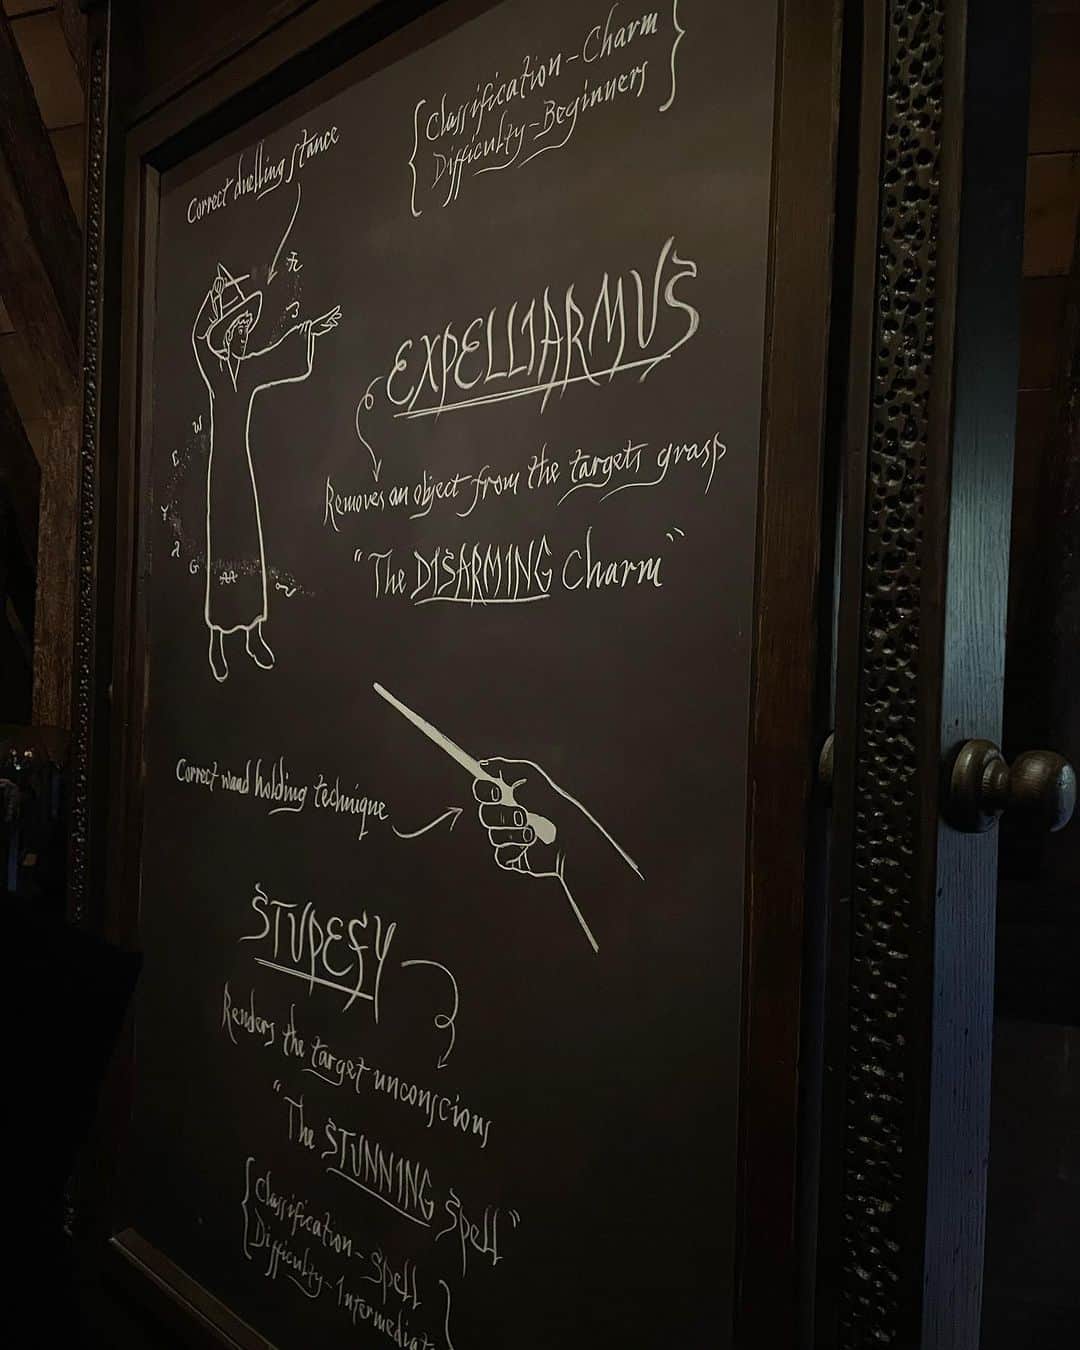 Classification - Charm
Difficulty - Beginners
Correct duelling stance
EXPELLIARMUS
Removes an object from the targets grasp
"The DISARMING Charm"
Correct wand holding technique
STUPEFY
Renders the target unconscious
"The STUNNING Spell"
Classification - Spell
Difficulty - Intermediate